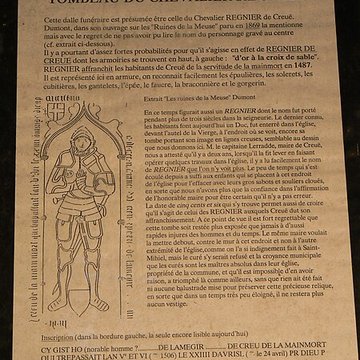 TOMBEAU DU CHEVALIER
Cette dalle funéraire est présumée être celle du Chevalier REGNIER de Creuë.
Dumont, dans son ouvrage sur les "Ruines de la Meuse" paru en 1869 la mentionne
mais avec le regret de ne pas avoir pu lire le nom du personnage gravé au centre
(cf. extrait ci-dessous).
Il y a pourtant d'assez fortes probabilités pour qu'il s'agisse en effet de REGNIER DE
CREUE dont les armoiries se trouvent en haut, à gauche : "d'or à la croix de sable".
REGNIER affranchit les habitants de Creuë de la servitude de la mainmort en 1487.
Il est représenté ici en armure, on reconnait facilement les épaulières, les solerets, les
cubitières, les gantelets, l'épée, le faucre, la braconnière et le gorgerin.
Extrait "Les ruines de la Meuse" Dumont
En ce temps figurait aussi un REGNIER dont le nom fut porté
dans plusieurs siècles dans la seigneurie. Le dernier connu
les habitants font aujourd'hui un Duc, fut enterré dans l'église,
devant l'autel de la Vierge, à l'endroit où se voit, encore sa
tombe portant son image en lignes creuses, semblable au dessin
que nous donnons ici. M. le capitaine Lerradde, maire de Creuë,
nous a attesté qu'il y a deux ans, lorsqu'il la fit lever en faisant
opérer quelques travaux dans l'église, il y a lu facilement le nom
de REGNIER que l'on n'y voit plus. Le peu de temps qui s'est
écoulé depuis a suffi aux enfants qui se placent à cet endroit
de l'église pour l'effacer avec leurs gros sabots et souliers cloués,
en sorte que nous n'avons plus que la confiance dans l'affirmation
de l'honorable maire pour être certain qu'il n'y a pas erreur.
La date de cinq cent et six qui s'y trouve permet aussi de croire
qu'il s'agit de celui des REGNIER auxquels Creuë dut son
affranchissement. A ce point de vue il est fort regrettable que
cette tombe soit restée plus exposée que jamais à d'aussi
rapides injures des hommes et du temps. Le même maire voulait
la mettre debout, contre le mur à cet endroit et non à l'autre
extrémité de l'église, comme on l'a si indignement fait à Saint-
Mihiel, mais le curé s'y serait refusé et la croyance municipale
que les curés sont les maîtres absolus dans leur église,
propriété de la commune, et qu'il est impossible d'en avoir
raison, a triomphé là comme ailleurs, sans que rien ait été fait
ni aucune balustrade mise pour préserver cette précieuse relique,
en sorte que dans un temps très peu éloigné, il ne restera plus
aucun vestige.
Inscription (dans la bordure gauche, la seule encore lisible aujourd'hui)
CY GIST HO (norable homme ? ........DE LAMEGIR ........ DE CREU DE LA MAINMORT
QUI TREPASSAIT LAN Vc ET VI ( = 1506) LE XXIIII DAVRISL ( = le 24 avril) PR DIEU P